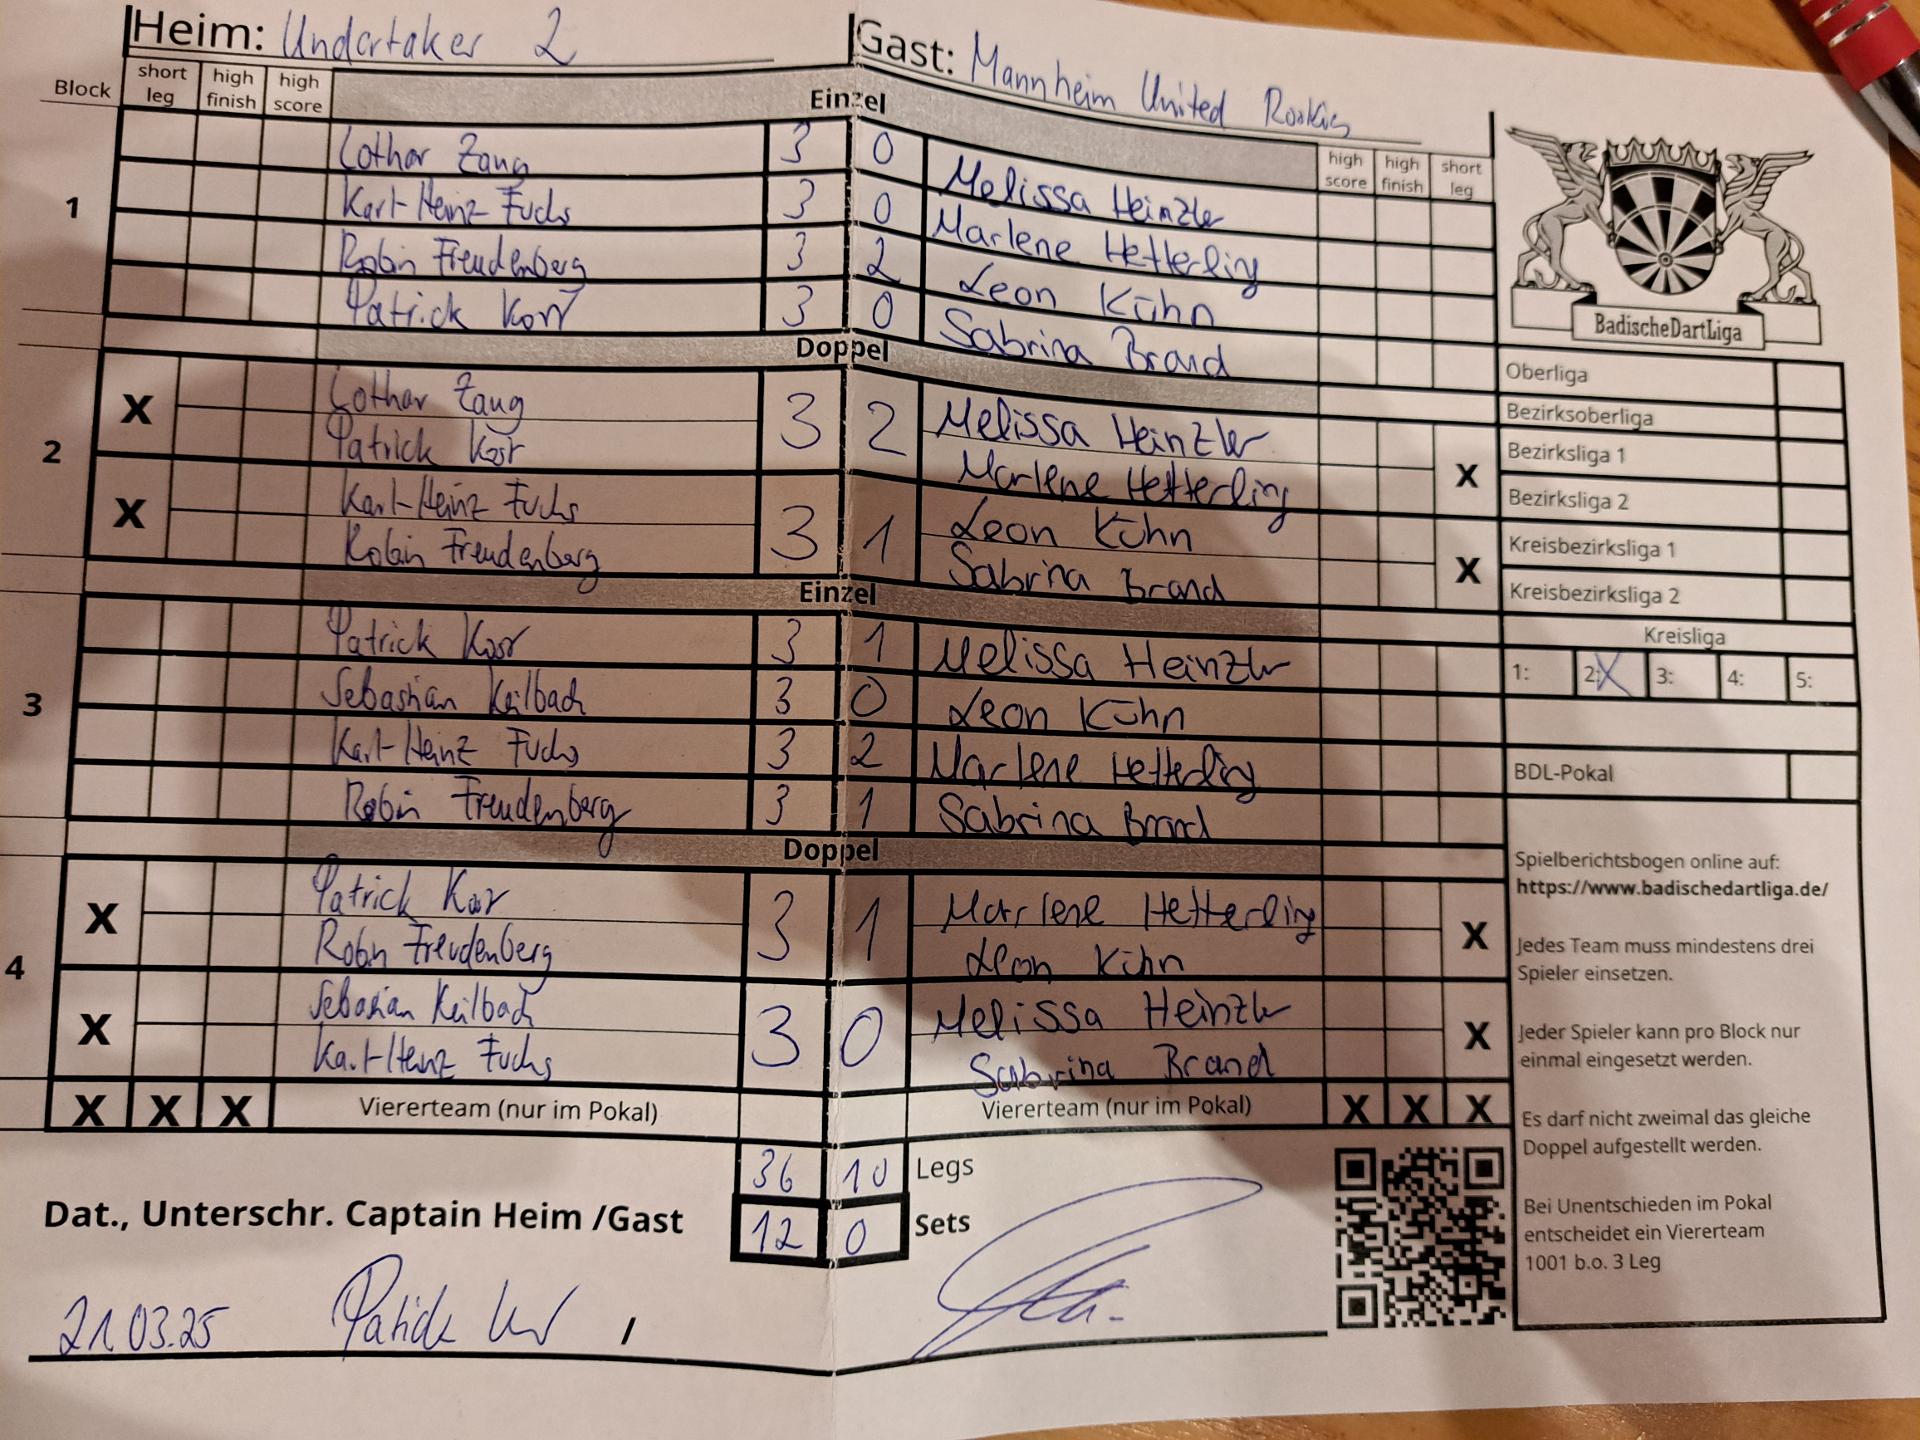 Heim: Undertaker 2 Gast: Mannheim United Rookies
Block short leg high finish high score Einzel high score high finish short leg
1
Lothar Zaug 3 0 Melissa Heinzler
Karl-Heinz Fuchs 3 0 Marlene Hetterling
Robin Freudenberg 3 2 Leon Kühn
Patrick Korr 3 0 Sabrina Brand
Doppel
2
X Lothar Zaug 3 2 Melissa Heinzler X
Patrick Korr Marlene Hetterling
X Karl-Heinz Fuchs 3 1 Leon Kühn X
Robin Freudenberg Sabrina Brand
Einzel
3
Patrick Korr 3 1 Melissa Heinzler
Sebastian Keilbach 3 0 Leon Kühn
Karl-Heinz Fuchs 3 2 Marlene Hetterling
Robin Freudenberg 3 1 Sabrina Brand
Doppel
4
X Patrick Korr 3 1 Marlene Hetterling X
Robin Freudenberg Leon Kühn
X Sebastian Keilbach 3 0 Melissa Heinzler X
Karl-Heinz Fuchs Sabrina Brand
X X X Viererteam (nur im Pokal) Viererteam (nur im Pokal) X X X
36 10 Legs
12 0 Sets
Dat., Unterschr. Captain Heim /Gast
21.03.25 Patrick /
BadischeDartLiga
Oberliga
Bezirksoberliga
Bezirksliga 1
Bezirksliga 2
Kreisbezirksliga 1
Kreisbezirksliga 2
Kreisliga
1: 2: X 3: 4: 5:
BDL-Pokal
Spielberichtsbogen online auf:
https://www.badischedartliga.de/
Jedes Team muss mindestens drei
Spieler einsetzen.
Jeder Spieler kann pro Block nur
einmal eingesetzt werden.
Es darf nicht zweimal das gleiche
Doppel aufgestellt werden.
Bei Unentschieden im Pokal
entscheidet ein Viererteam
1001 b.o. 3 Leg